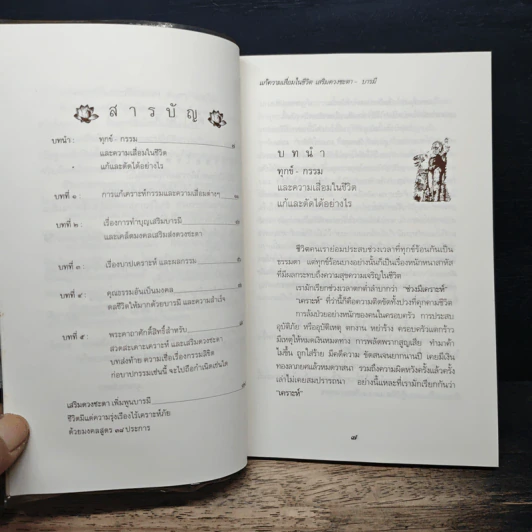 สารบัญ
บทนำ : ทุกข์ - กรรม
และความเสื่อมในชีวิต
แก้และตัดได้อย่างไร
บทที่ ๑ : การแก้เคราะห์กรรมและความเสื่อมต่างๆ
บทที่ ๒ : เรื่องการทำบุญเสริมบารมี
และเคล็ดมงคลเสริมส่งดวงชะตา
บทที่ ๓ : เรื่องบาปเคราะห์ และผลกรรม
บทที่ ๔ : คุณธรรมอันเป็นมงคล
ดลชีวิตให้มากด้วยบารมี และความสำเร็จ
บทที่ ๕ : พระคาถาศักดิ์สิทธิ์สำหรับ
สวดสะเดาะเคราะห์ และเสริมดวงชะตา
บทส่งท้าย ความเชื่อเรื่องกรรมลิขิต
ก่อบาปกรรมเช่นนี้ จะไปถือกำเนิดเช่นใด
เสริมดวงชะตา เพิ่มพูนบารมี
ชีวิตมีแต่ความรุ่งเรืองไร้เคราะห์ภัย
ด้วยมงคลสูตร ๓๘ ประการ
แก้ความเสื่อมในชีวิต เสริมดวงชะตา - บารมี
บทนำ
ทุกข์ - กรรม
และความเสื่อมในชีวิต
แก้และตัดได้อย่างไร
ชีวิตคนเราย่อมประสบช่วงเวลาที่ทุกข์ร้อนกันเป็น
ธรรมดา แต่ทุกข์ร้อนบางอย่างนั้นก็เป็นเรื่องหนักหนาสาหัส
ที่มีผลกระทบถึงความสุขความเจริญในชีวิต
เรามักเรียกช่วงเวลาตกต่ำลำบากว่า "ช่วงมีเคราะห์"
"เคราะห์" ที่ว่านี้ก็คือความติดขัดทั้งปวงที่คุกคามชีวิต
การล้มป่วยอย่างหนักของคนในครอบครัว การประสบ
อุบัติภัย หรืออุบัติเหตุ ตกงาน หย่าร้าง ครอบครัวแตกร้าว
มีเหตุให้หมดเงินหมดทาง การพลัดพรากสูญเสีย ทำมาค้า
ไม่ขึ้น ถูกใส่ร้าย มีคดีความ ขัดสนจนยากนานปี เคยมีเงิน
ทองลาภยศแล้วหมดวาสนา รวมถึงความผิดหวังครั้งแล้วครั้ง
เล่าไม่เคยสมปรารถนา อย่างนี้แหละที่เรามักเรียกกันว่า
"เคราะห์"
๗